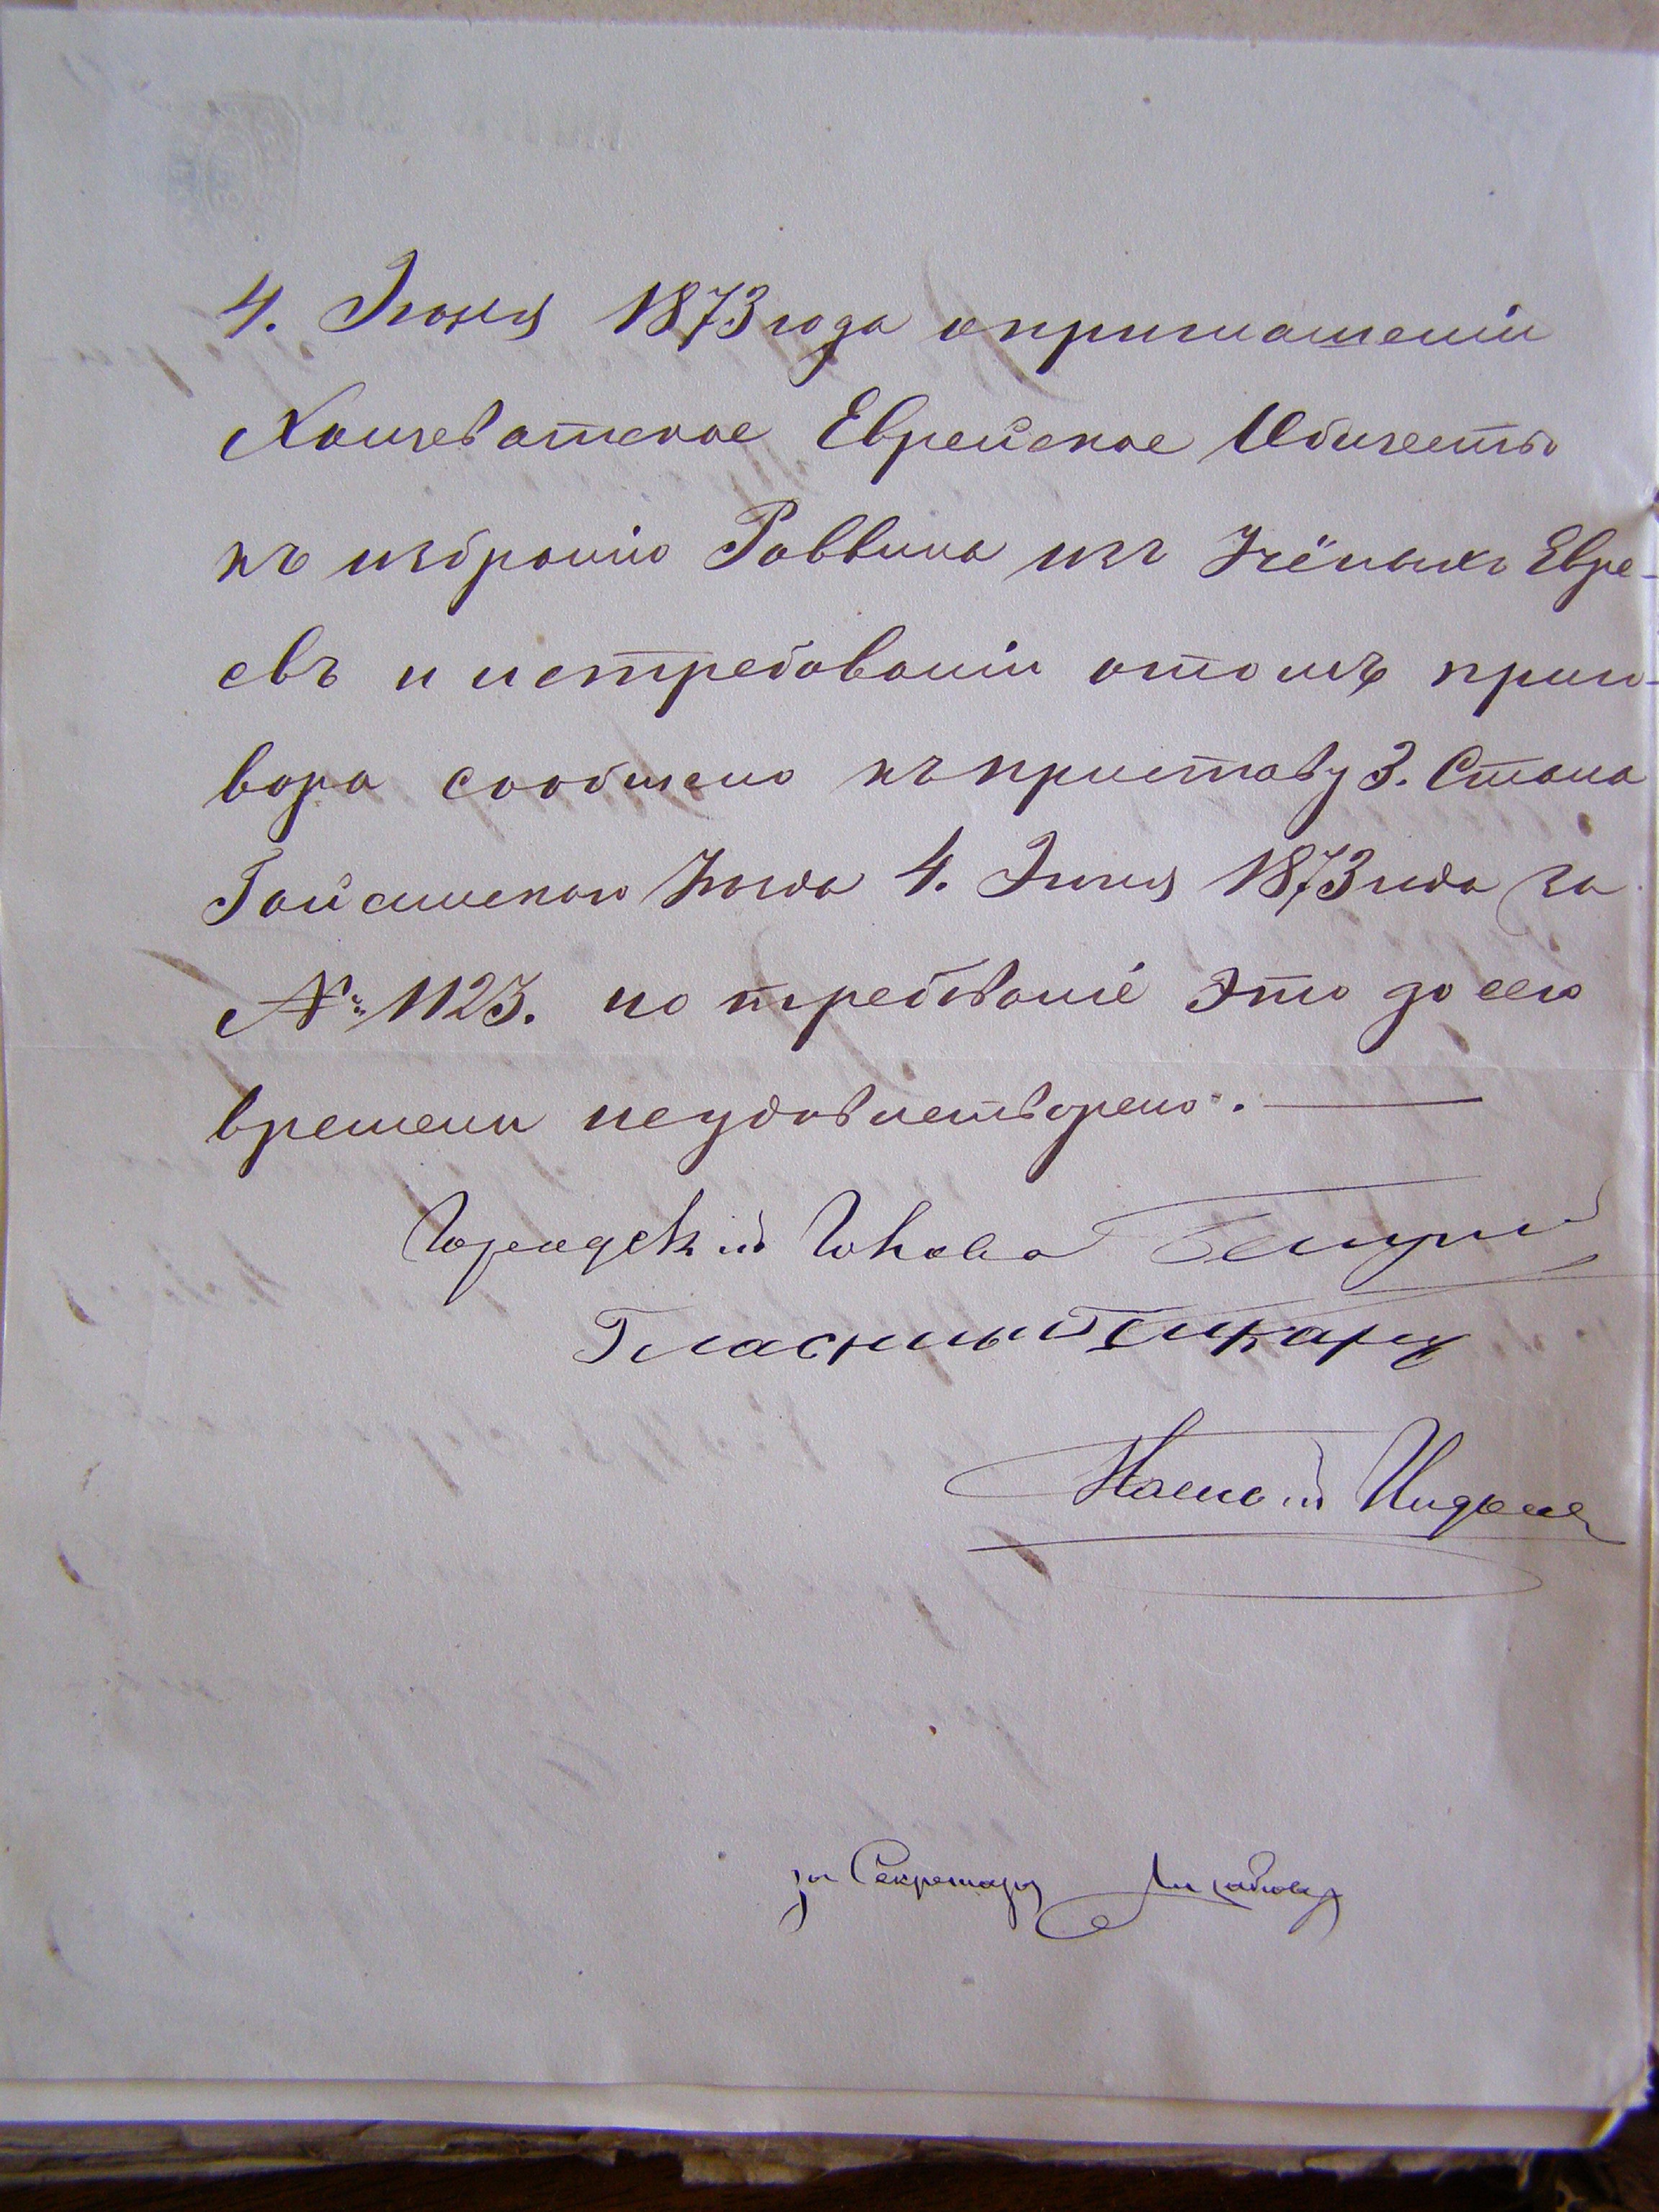 4. Iюня 1873 года о приглашенiи
Хощеватское Еврейское Общество
къ избранiю Раввина изъ Учёныхъ Евре-
евъ и истребованiи отомъ приго-
вора сообщено къ приставу 3. Стана
Гайсинскаго Уезда 4. Iюня 1873 года за
№ 1123. но требованiе это до сего
времени неудовлетворено. —
Городскiй Голова
Гласный
за Секретаря